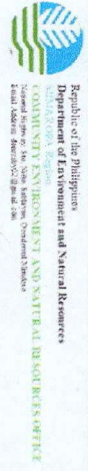 Republic of the Philippines
Department of Environment and Natural Resources
MIMAROPA Region
COMMUNITY ENVIRONMENT AND NATURAL RESOURCES OFFICE
National Highway, Sitio Sablayan, Occidental Mindoro
Email Address: